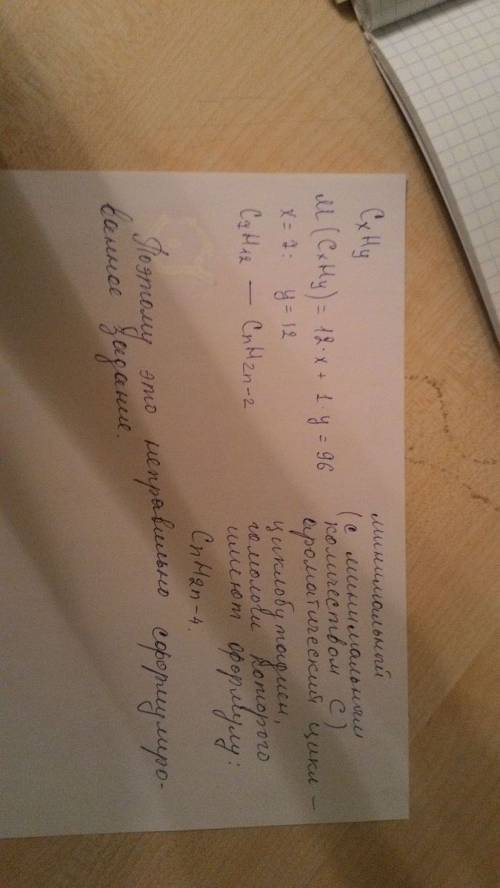 CxHy
M(CxHy) = 12·x + 1·y = 96
x = 7: y = 12
C7H12 — CnH2n-2
минимальный
(с минимальным
количеством C)
ароматический цикл –
циклобутадиен,
гомологи которого
имеют формулу:
CnH2n-4.
Поэтому это неправильно сформулиро-
ванное задание.